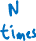 N
times